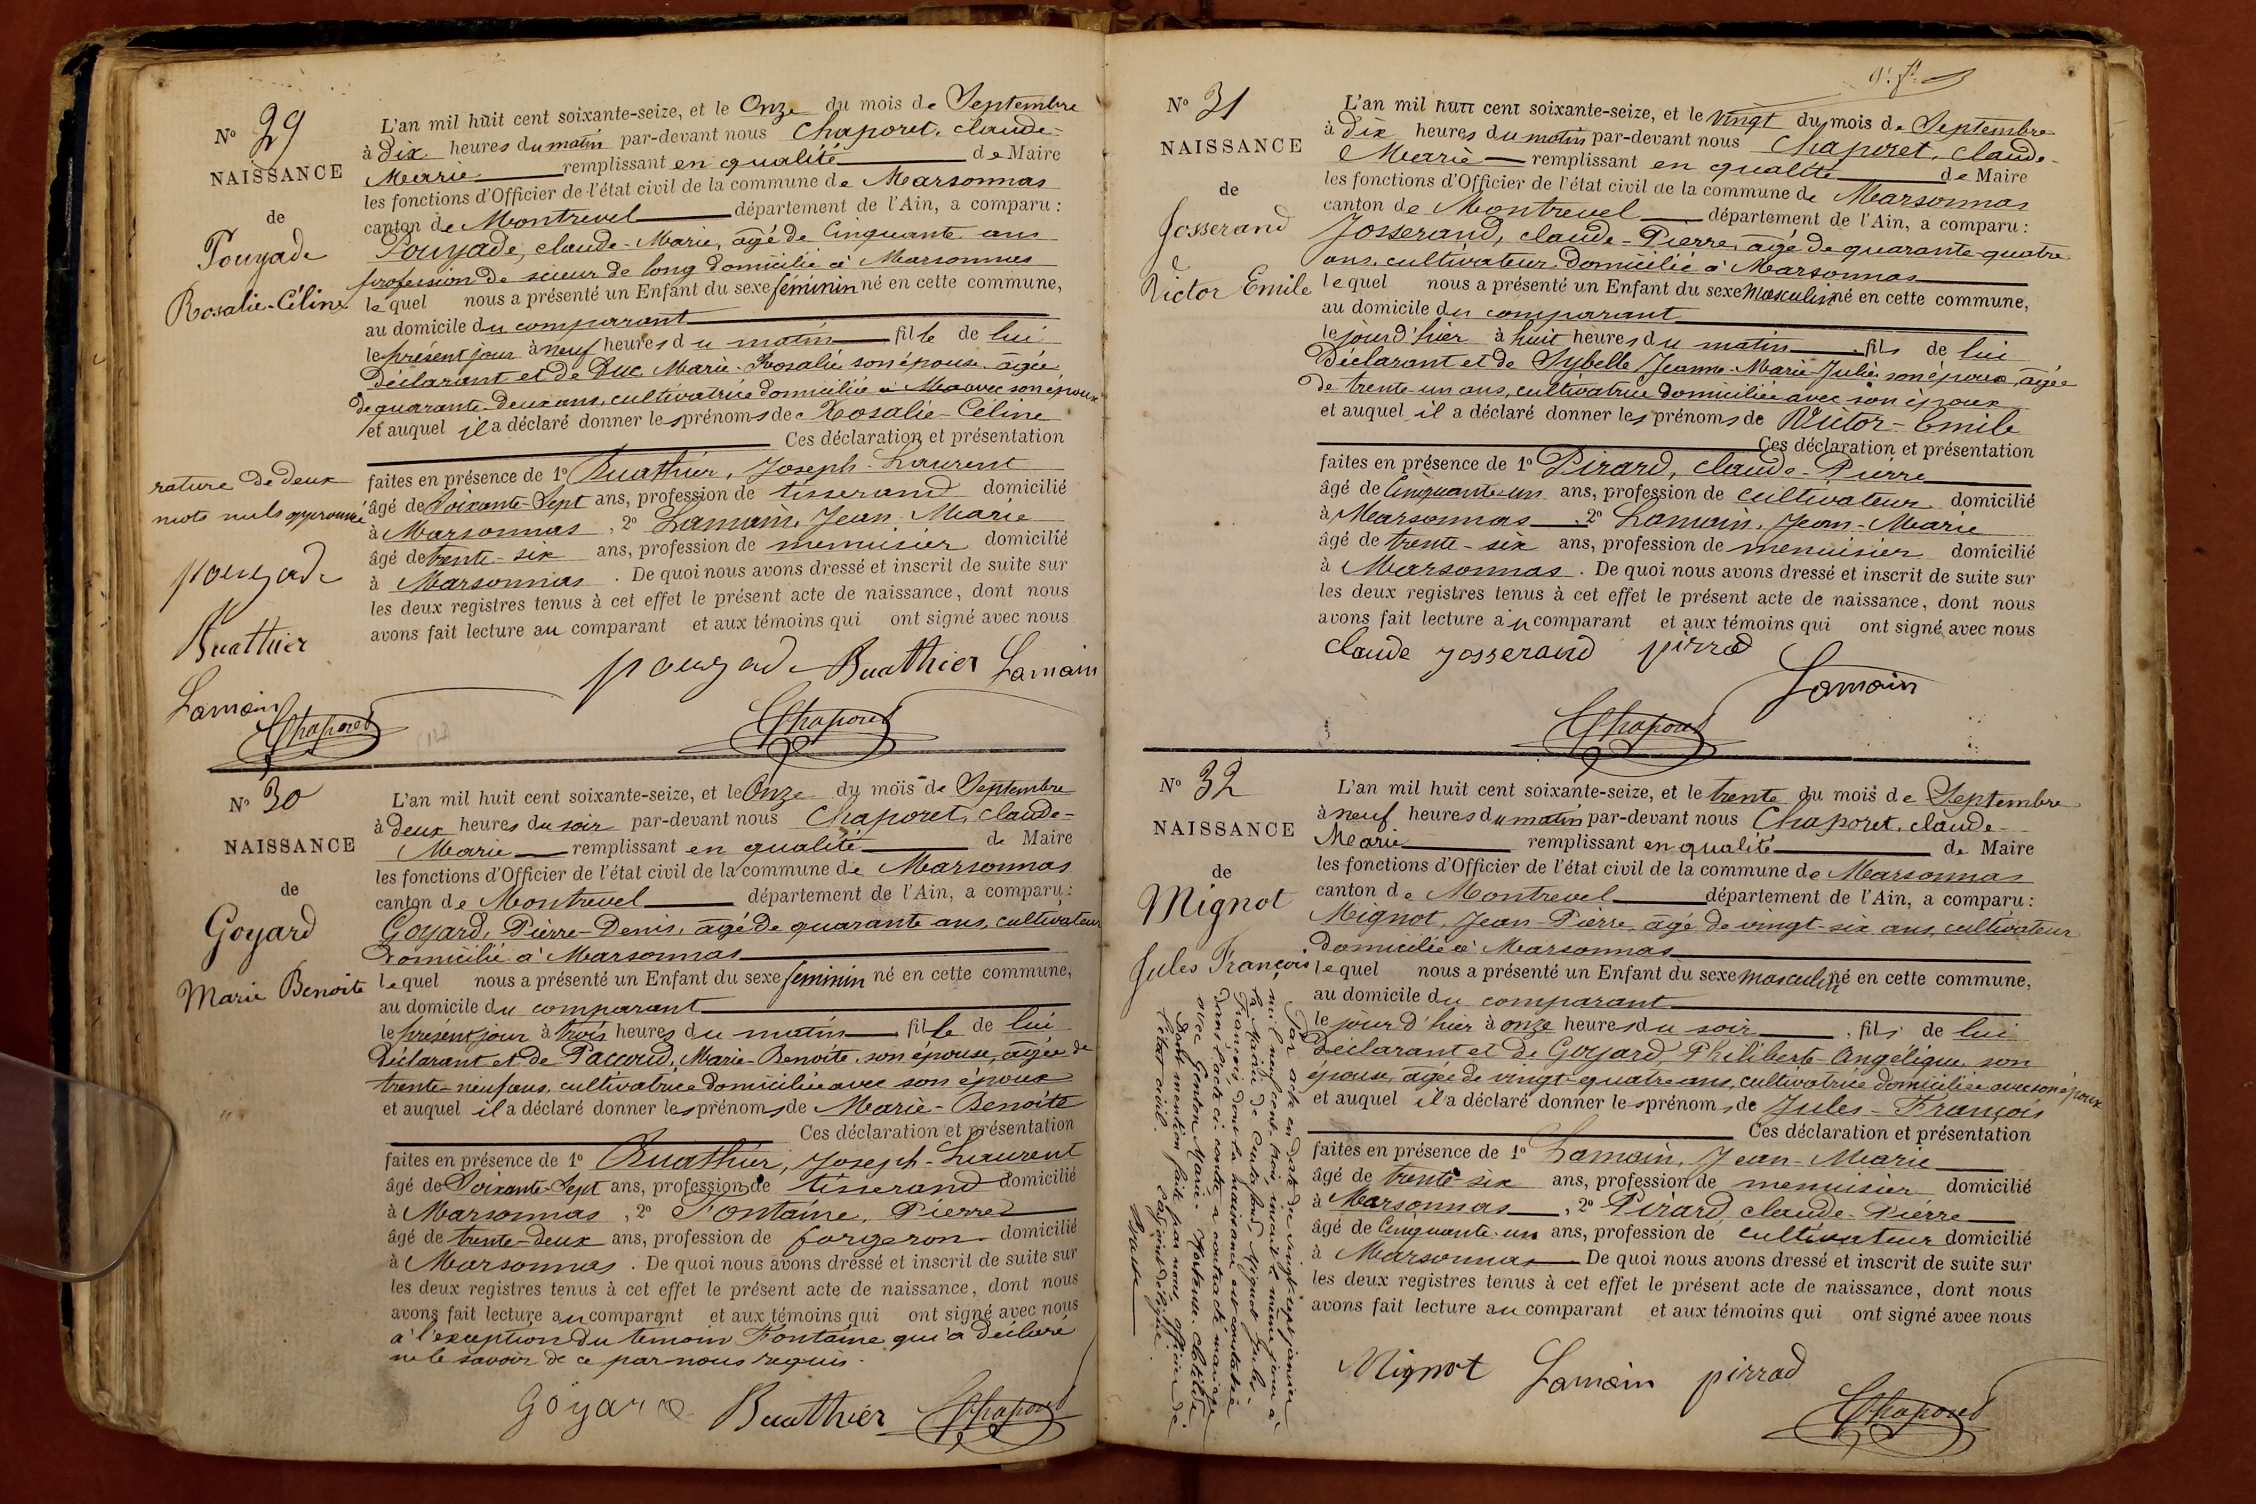 Nº 29
NAISSANCE
de
Pouyade
Rosalie-Céline
L'an mil huit cent soixante-seize, et le Onze du mois de Septembre
à dix heures du matin par-devant nous Chaporet, claude-
Marie remplissant en qualité de Maire
les fonctions d'Officier de l'état civil de la commune de Marsonnas
canton de Montrevel département de l'Ain, a comparu :
Pouyade, claude-Marie, âgé de Cinquante ans
profession de scieur de long domicilié à Marsonnas
lequel nous a présenté un Enfant du sexe féminin né en cette commune,
au domicile du comparant
le présent jour à neuf heures du matin fille de lui
Déclarant et de Duc Marie-Rosalie son épouse âgée
de quarante-deux ans, cultivatrice domiciliée à Ma avec son époux
et auquel il a déclaré donner les prénoms de Rosalie-Céline
Ces déclaration et présentation
faites en présence de 1º Buathier, Joseph-Laurent
âgé de Soixante-Sept ans, profession de tisserand domicilié
à Marsonnas, 2º Lamain, Jean-Marie
âgé de trente-six ans, profession de menuisier domicilié
à Marsonnas. De quoi nous avons dressé et inscrit de suite sur
les deux registres tenus à cet effet le présent acte de naissance, dont nous
avons fait lecture au comparant et aux témoins qui ont signé avec nous
rature de deux
mots nuls approuvée
pouyade
Buathier
Lamain
Chaporet
pouyade Buathier Lamain
Chaporet
Nº 30
NAISSANCE
de
Goyard
Marie Benoite
L'an mil huit cent soixante-seize, et le Onze du mois de Septembre
à deux heures du soir par-devant nous Chaporet, claude-
Marie remplissant en qualité de Maire
les fonctions d'Officier de l'état civil de la commune de Marsonnas
canton de Montrevel département de l'Ain, a comparu :
Goyard, Pierre-Denis, âgé de quarante ans, cultivateur
Domicilié à Marsonnas
lequel nous a présenté un Enfant du sexe féminin né en cette commune,
au domicile du comparant
le présent jour à trois heures du matin fille de lui
Déclarant et de Paccoud, Marie-Benoite, son épouse, âgée de
trente-neuf ans, cultivatrice domiciliée avec son époux
et auquel il a déclaré donner les prénoms de Marie-Benoite
Ces déclaration et présentation
faites en présence de 1º Buathier, Joseph-Laurent
âgé de Soixante-Sept ans, profession de tisserand domicilié
à Marsonnas, 2º Fontaine, Pierre
âgé de trente-deux ans, profession de forgeron domicilié
à Marsonnas. De quoi nous avons dressé et inscrit de suite sur
les deux registres tenus à cet effet le présent acte de naissance, dont nous
avons fait lecture au comparant et aux témoins qui ont signé avec nous
à l'exception du temoin Fontaine qui a déclaré
ne le savoir de ce par nous requis.
Goyard Buathier Chaporet
Nº 31
NAISSANCE
de
Josserand
Victor Emile
L'an mil huit cent soixante-seize, et le vingt du mois de Septembre
à dix heures du matin par-devant nous Chaporet, claude-
Marie remplissant en qualité de Maire
les fonctions d'Officier de l'état civil de la commune de Marsonnas
canton de Montrevel département de l'Ain, a comparu :
Josserand, claude-Pierre, âgé de quarante-quatre
ans, cultivateur, domicilié à Marsonnas
lequel nous a présenté un Enfant du sexe masculin né en cette commune,
au domicile du comparant
le jour d'hier à huit heures du matin fils de lui
Déclarant et de Sybelle Jeanne-Marie-Julie son épouse, âgée
de trente un ans, cultivatrice domiciliée avec son époux
et auquel il a déclaré donner les prénoms de Victor-Emile
Ces déclaration et présentation
faites en présence de 1º Pirard, claude-Pierre
âgé de Cinquante-un ans, profession de cultivateur domicilié
à Marsonnas, 2º Lamain, Jean-Marie
âgé de trente-six ans, profession de menuisier domicilié
à Marsonnas. De quoi nous avons dressé et inscrit de suite sur
les deux registres tenus à cet effet le présent acte de naissance, dont nous
avons fait lecture au comparant et aux témoins qui ont signé avec nous
claude josserand pirrad
Lamain
Chaporet
Nº 32
NAISSANCE
de
Mignot
Jules François
L'an mil huit cent soixante-seize, et le trente du mois de Septembre
à neuf heures du matin par-devant nous Chaporet, claude-
Marie remplissant en qualité de Maire
les fonctions d'Officier de l'état civil de la commune de Marsonnas
canton de Montrevel département de l'Ain, a comparu :
Mignot, Jean-Pierre, âgé de vingt-six ans, cultivateur
domicilié à Marsonnas
lequel nous a présenté un Enfant du sexe masculin né en cette commune,
au domicile du comparant
le jour d'hier à onze heures du soir, fils de lui
Déclarant et de Goyard Philiberte-Angélique, son
épouse, âgée de vingt-quatre ans, cultivatrice domiciliée avec son époux
et auquel il a déclaré donner les prénoms de Jules-François
Ces déclaration et présentation
faites en présence de 1º Lamain, Jean-Marie
âgé de trente-six ans, profession de menuisier domicilié
à Marsonnas, 2º Pirard claude-Pierre
âgé de Cinquante-un ans, profession de cultivateur domicilié
à Marsonnas De quoi nous avons dressé et inscrit de suite sur
les deux registres tenus à cet effet le présent acte de naissance, dont nous
avons fait lecture au comparant et aux témoins qui ont signé avec nous
Mignot Lamain pirrad
Chaporet
Par acte en date du vingt-sept janvier
mil neuf cent trois, inscrit le même jour à
la Mairie de Curtafond, Mignot Jules-
François, dont la naissance est constatée
dans l'acte ci-contre a contracté mariage
avec Gonton Marie-Hortense-Clotilde
Dont mention faite par nous, officier de
l'état civil. L'adjoint délégué.